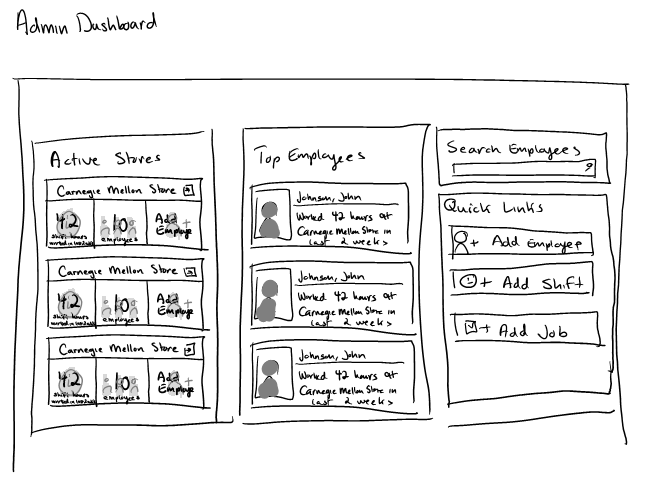 Admin Dashboard
Active Stores
Carnegie Mellon Store
42
shift hours
worked in last 2 weeks
10
employees
Add +
Employee
Carnegie Mellon Store
42
shift hours
10
employees
Add +
Employe
Carnegie Mellon Store
42
shift hours
10
employees
Add +
Employe
Top Employees
Johnson, John
Worked 42 hours at
Carnegie Mellon Store in
last 2 weeks
Johnson, John
Worked 42 hours at
Carnegie Mellon Store in
last 2 weeks
Johnson, John
Worked 42 hours at
Carnegie Mellon Store in
last 2 weeks
Search Employees
Quick Links
+ Add Employee
+ Add Shift
+ Add Job